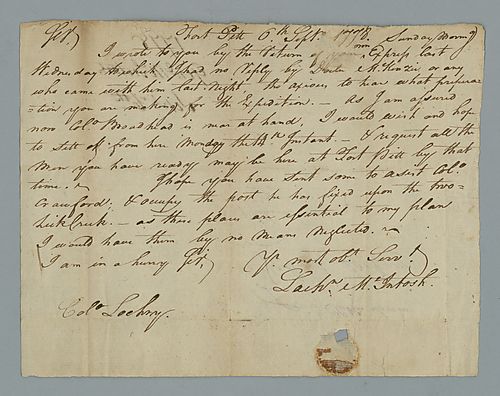 Sir, Fort Pitt 6th Sept. 1778. Sunday Morng
I wrote to you by the Return Express last
Wednesday to which I had no Reply by McKenzie or any
who came with him last Night & am anxious to hear what prepara-
-tion you are making for the Expedition. — As I am assured
now Colo. Broadhead is near at hand, I would wish and hope
to sett off from here Monday the Instant. — & request all the
Men you have ready may be here at Fort Pitt by that
time. — I hope you have sent some to assist Colo.
Crawford, & occupy the post he has fixed upon the two-
lick Creek. — as these places are essential to my plan
I would have them by no means neglected. —
I am in a hurry Sir,
Yr. most obt. Servt.
Lachn. McIntosh.
Colo. Lochry.